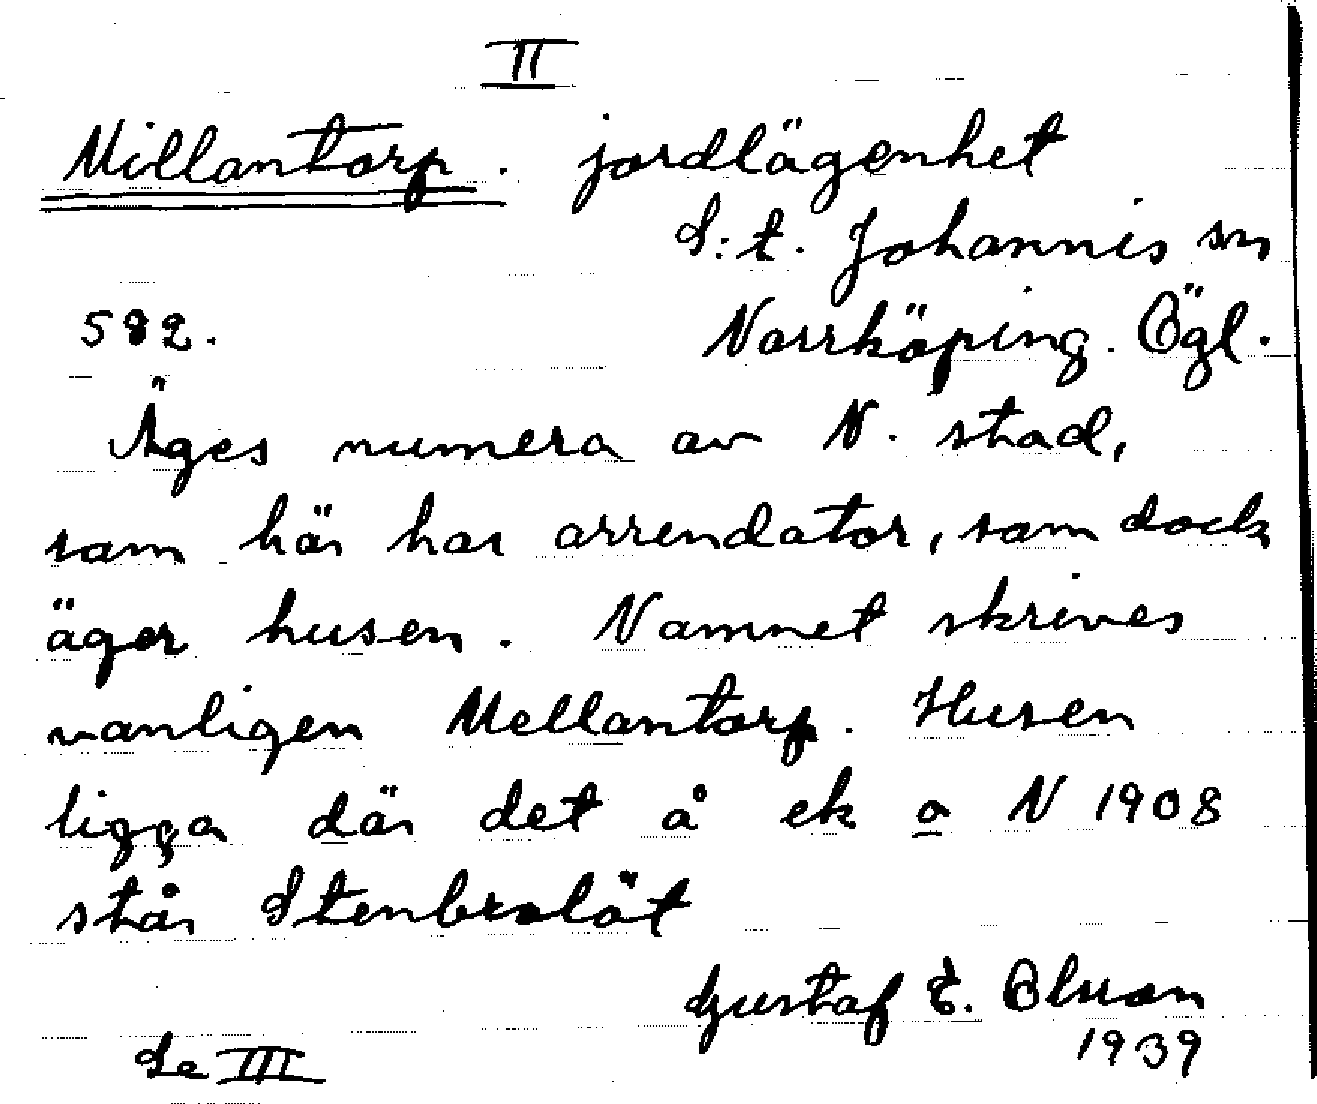 II
Millantorp. jordlägenhet
S:t. Johannis sn
582. Norrköping. Ögl.
Äges numera av N. stad,
som här har arrendator, som dock
äger husen. Namnet skrives
vanligen Mellantorp. Husen
ligga där det å ek a N 1908
står Stenbrolöt
Gustaf E. Olsson
1939
Se III